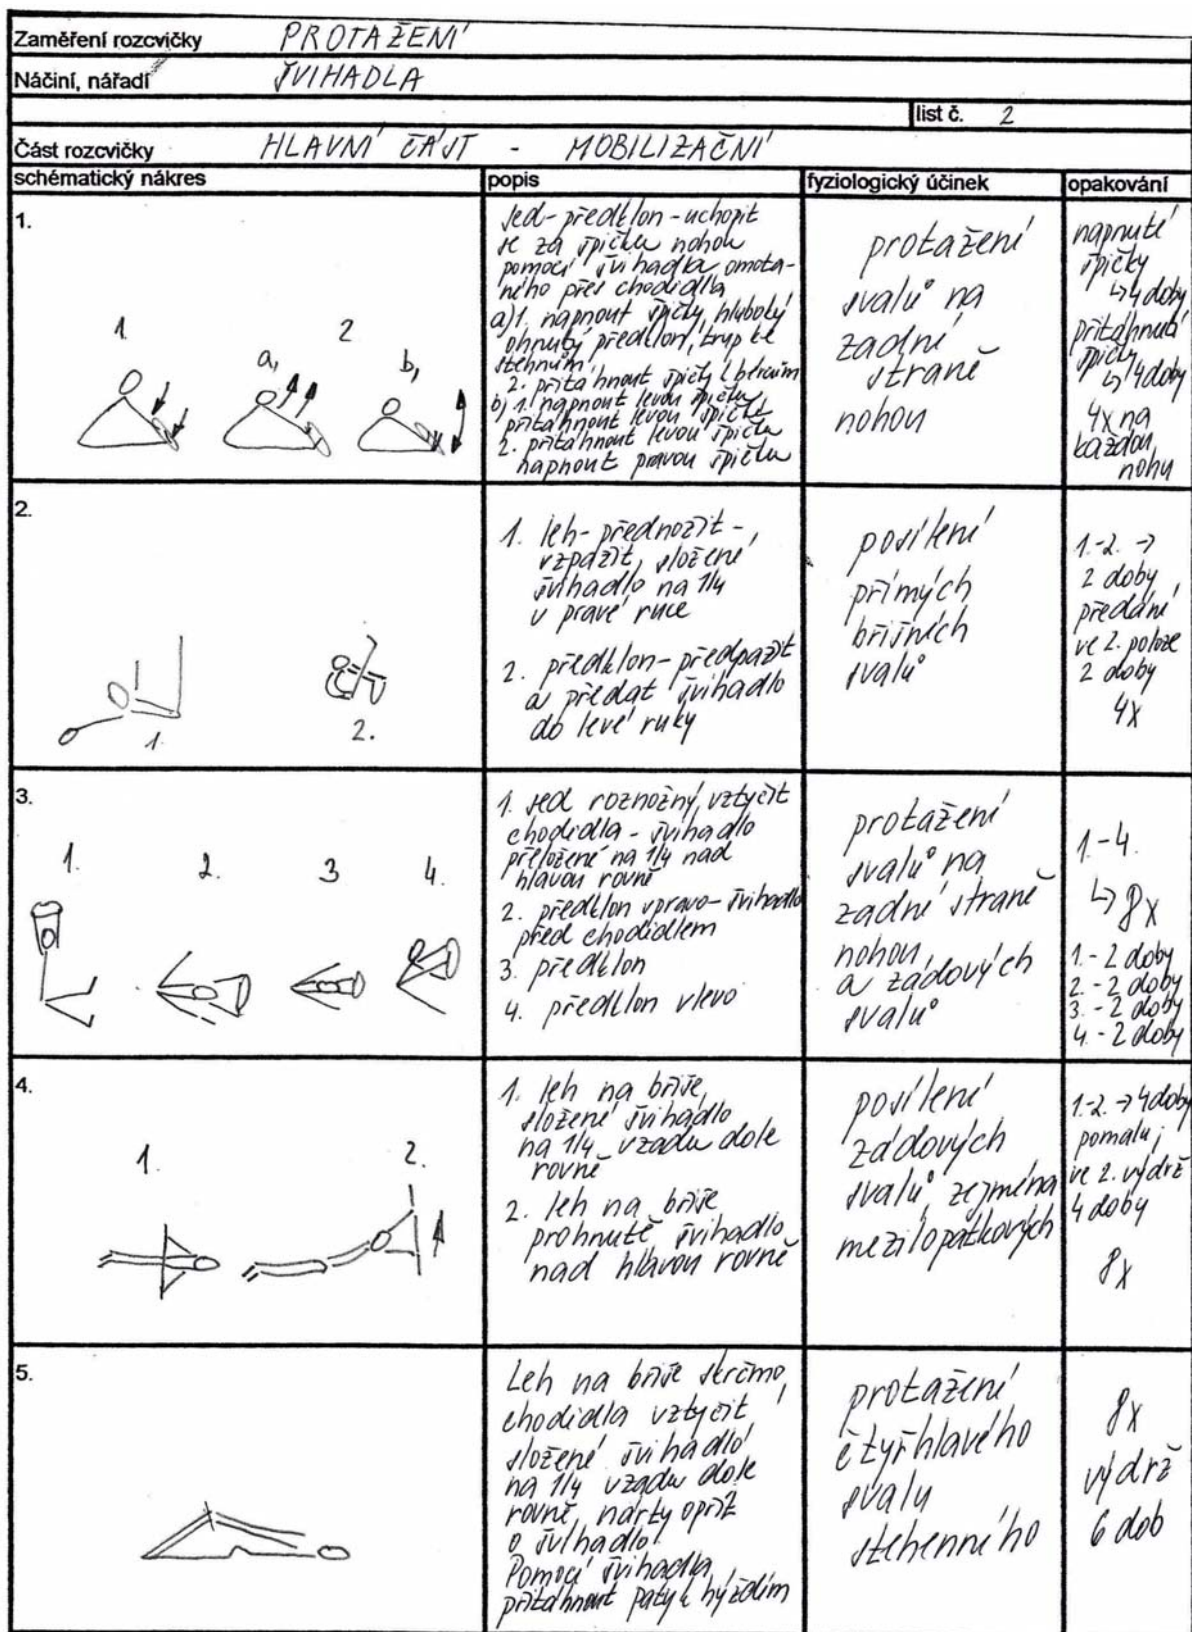 Zaměření rozcvičky PROTAŽENÍ
Náčiní, nářadí ŠVIHADLA
list č. 2
Část rozcvičky HLAVNÍ ČÁST - MOBILIZAČNÍ
schématický nákres popis fyziologický účinek opakování
1.
1. 2
a, b,
sed-předklon-uchopit
se za špičku nohou
pomocí švihadla omota-
ného přes chodidla
a) 1. napnout špičky, hluboký
ohnutý předklon, trup ke
stehnům,
2. přitáhnout špičky k bércům
b) 1. napnout levou špičku
přitáhnout levou špičku
2. přitáhnout levou špičku
napnout pravou špičku
protažení
svalů na
zadní
straně
nohou
napnuté
špičky
↳ 4 doby
přitáhnuté
špičky
↳ 4 doby
4x na
každou
nohu
2.
1. 2.
1. leh-přednožit-
vzpažit, složené
švihadlo na 1/4
v pravé ruce
2. předklon-předpažit
a předat švihadlo
do levé ruky
posílení
přímých
břišních
svalů
1.-2. →
2 doby
předání
ve 2. poloze
2 doby
4x
3.
1. 2. 3 4.
1. sed roznožný, vztyčit
chodidla - švihadlo
přeložené na 1/4 nad
hlavou rovně
2. předklon vpravo-švihadlo
před chodidlem
3. předklon
4. předklon vlevo
protažení
svalů na
zadní straně
nohou,
a zádových
svalů
1.-4.
↳ 8x
1. - 2 doby
2. - 2 doby
3. - 2 doby
4. - 2 doby
4.
1. 2.
1. leh na břiše,
složené švihadlo
na 1/4 vzadu dole
rovně
2. leh na břiše
prohnutě švihadlo
nad hlavou rovně
posílení
zádových
svalů, zejména
mezilopatkových
1.-2. → 4 doby
pomalu;
ve 2. výdrž
4 doby
8x
5.
Leh na břiše skrčmo,
chodidla vztyčit,
složené švihadlo
na 1/4 vzadu dole
rovně, nárty opřít
o švihadlo.
Pomocí švihadla
přitáhnout paty k hýždím
protažení
čtyřhlavého
svalu
stehenního
8x
výdrž
6 dob